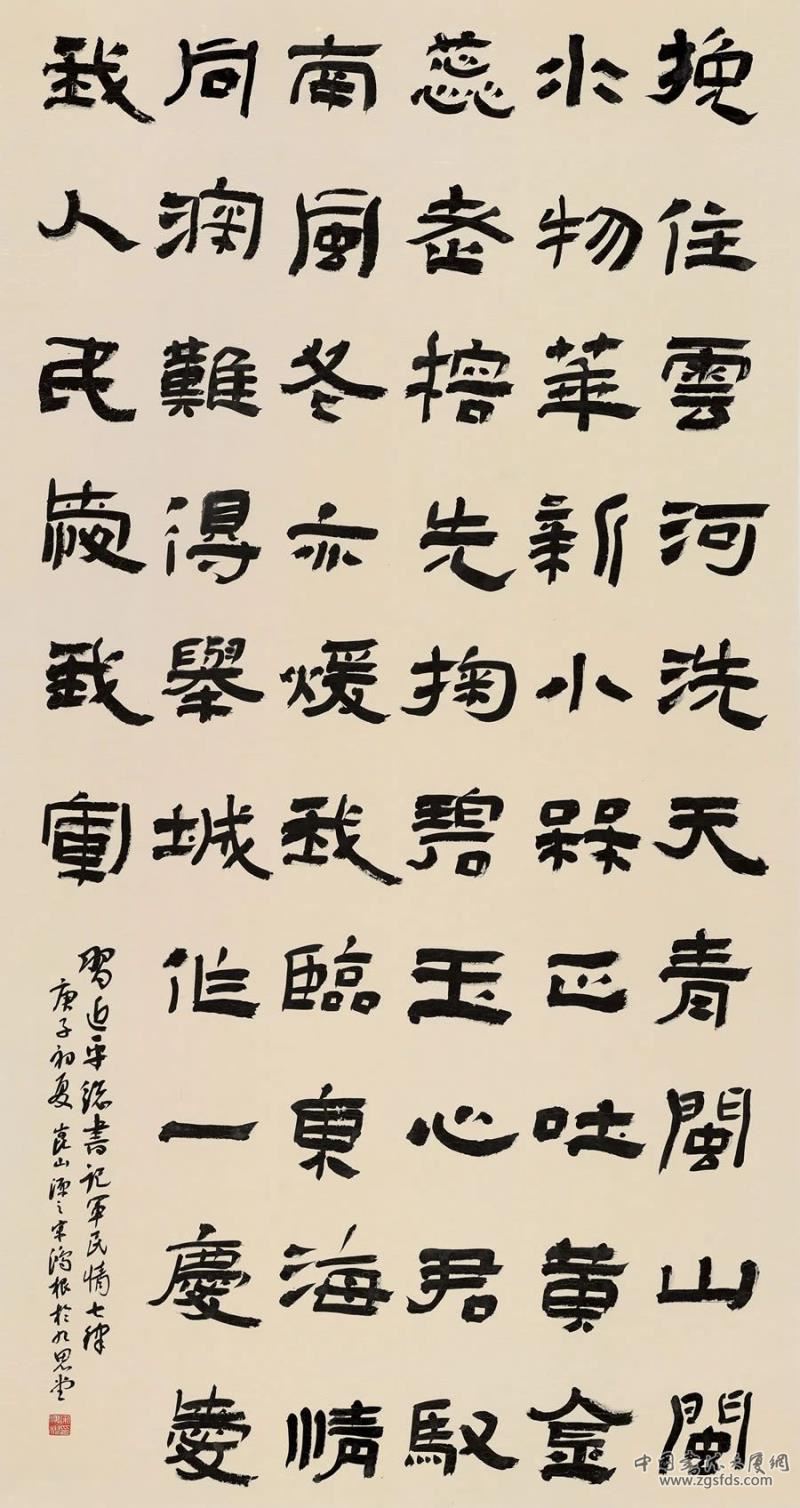 挽住雲河洗天青閩山閩
水物華新小槑正吐黄金
蕊老榕先掬碧玉心君馭
南風冬亦暖我臨東海情
同深難得舉城作一慶愛
我人民愛我軍
習近平總書記軍民情七律
庚子初夏崑山宋鴻根於九思堂
中国書法大厦網
www.zgsfds.com